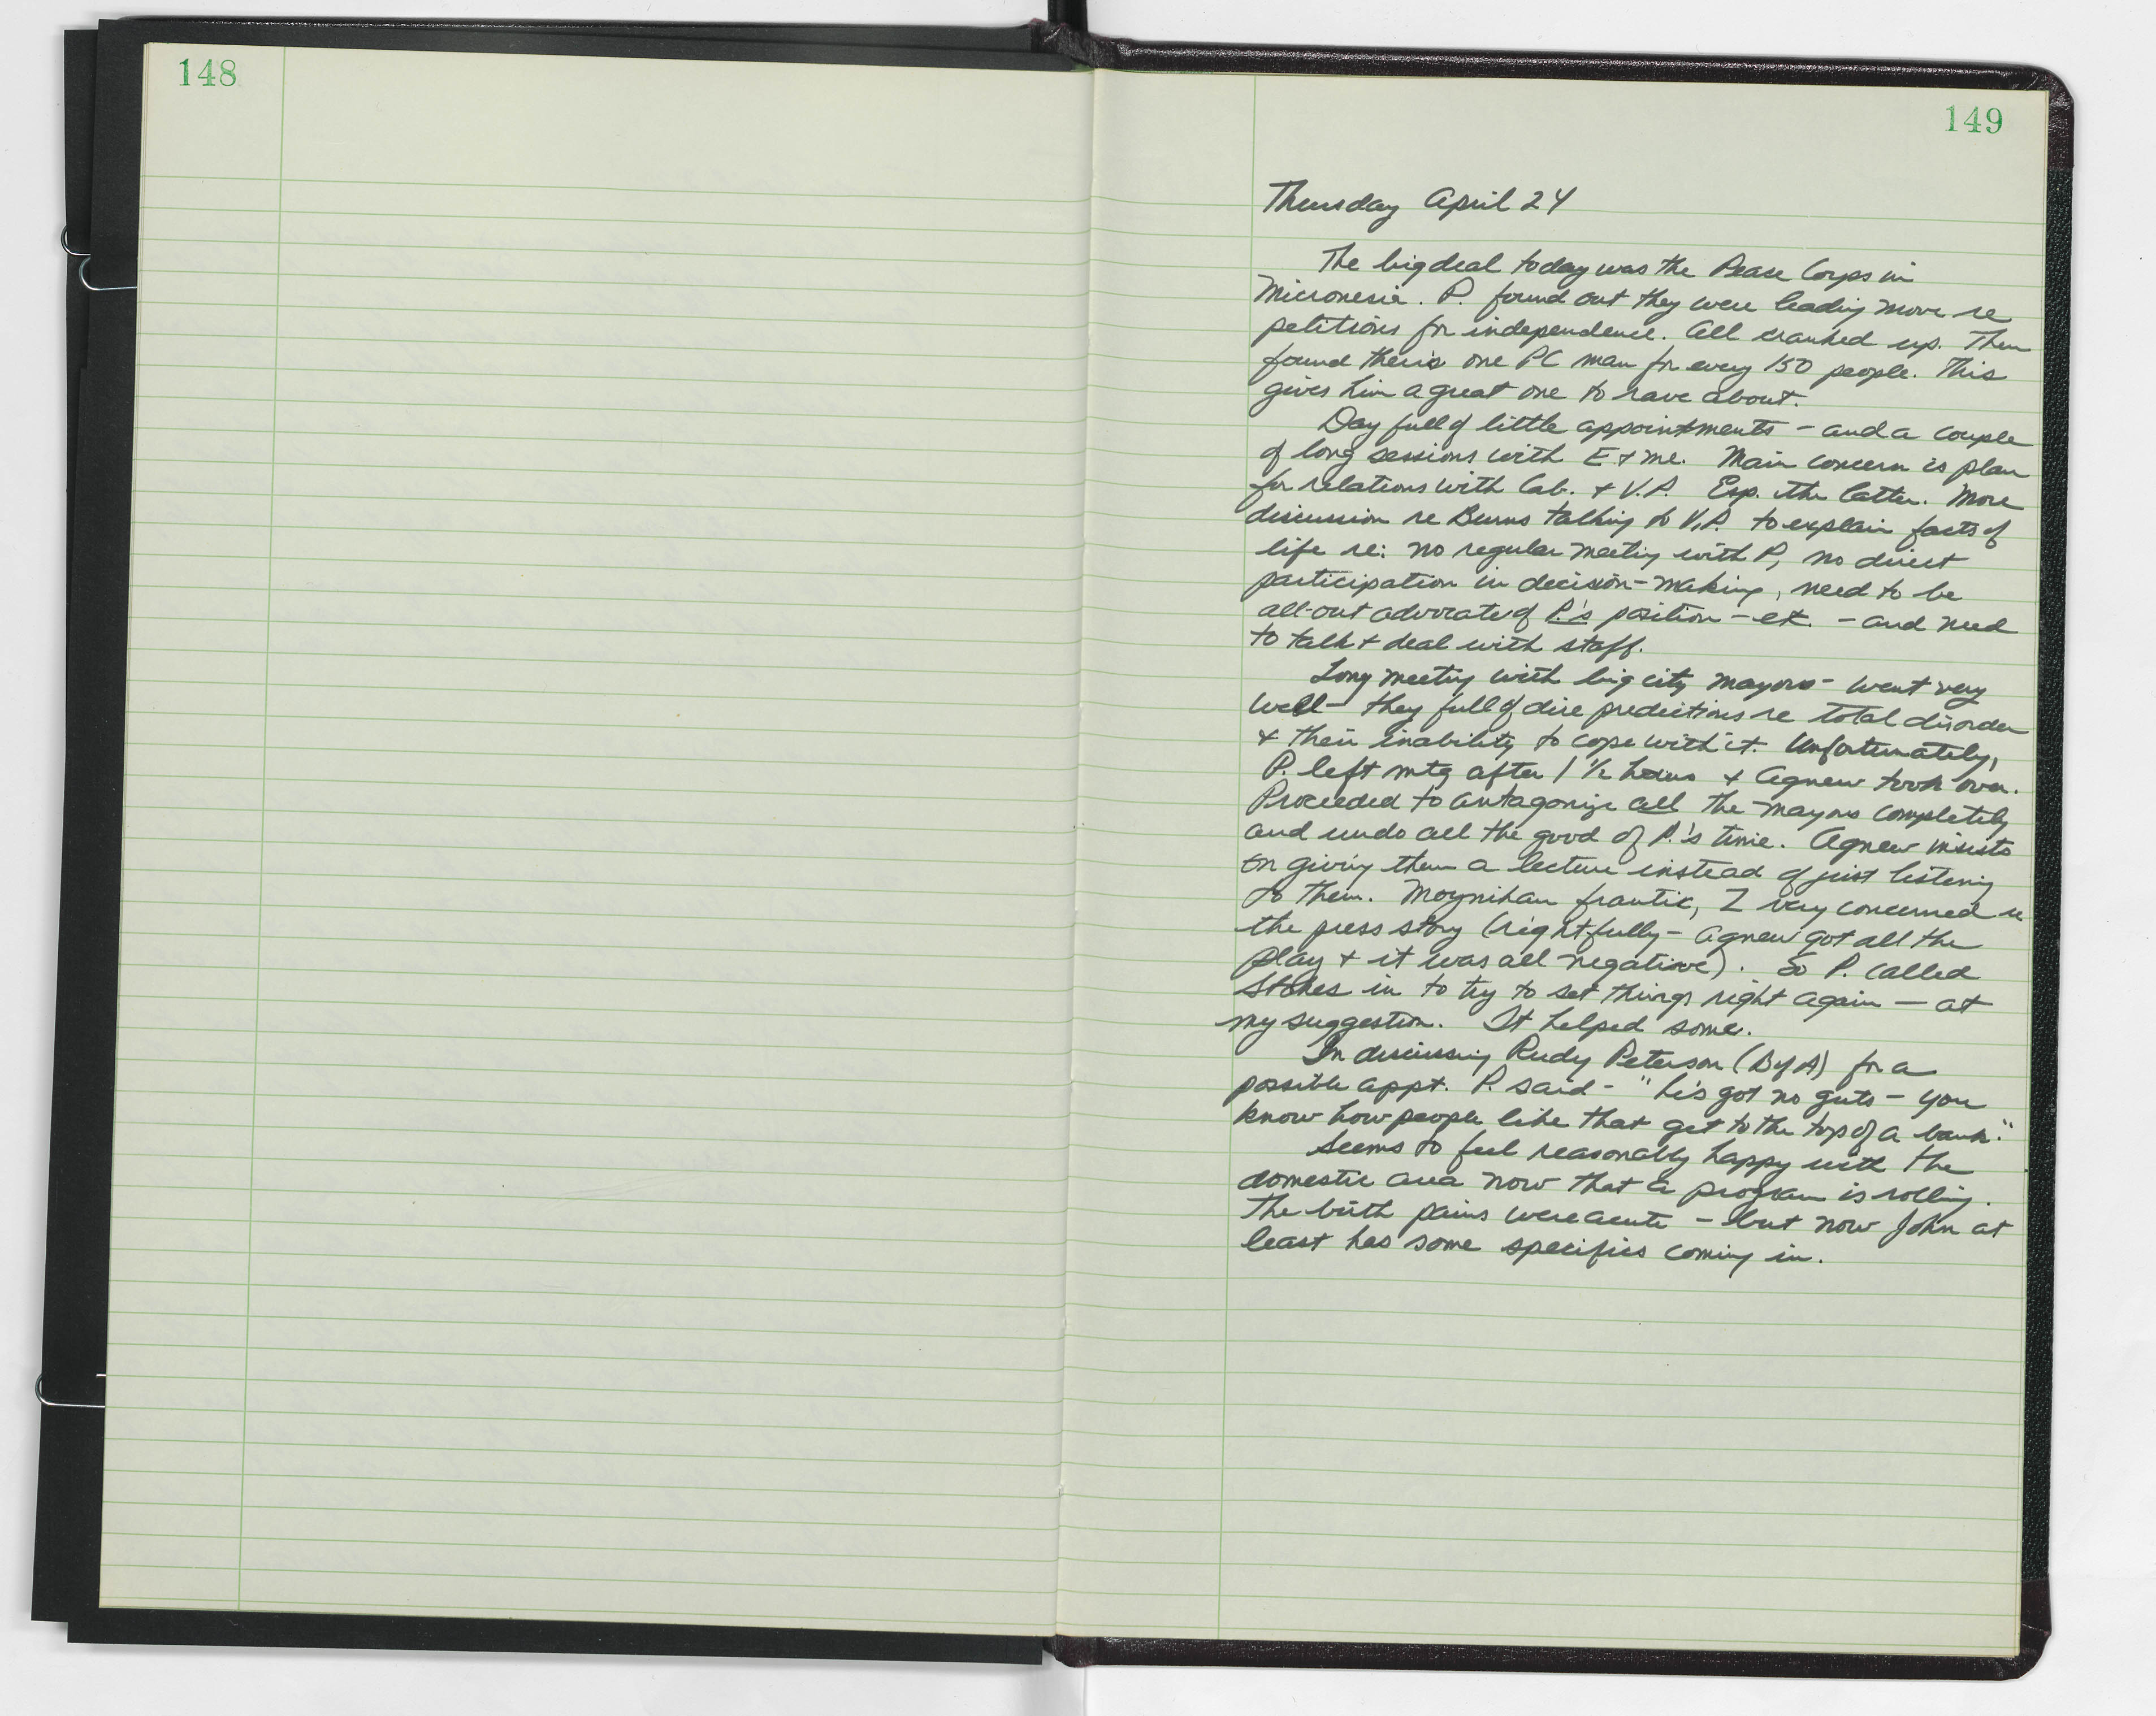 148
149
Thursday April 24
The big deal today was the Pease Corps in
Micronesia. P. found out they were leading move re
petitions for independence. All cranked up. Then
found theris one PC man for every 150 people. This
gives him a great one to rave about.
Day full of little appointments - and a couple
of long sessions with E & me. Main concern is plan
for relations with Cab. & V.P. Esp. the latter. More
discussion re Burns talking to V.P. to explain facts of
life re: no regular meeting with P, no direct
participation in decision-making, need to be
all-out advocate of P.'s position - etc. - and need
to talk & deal with staff.
Long meeting with big city mayors - went very
well - they full of dire predictions re total disorder
& their inability to cope with it. Unfortunately,
P. left mtg after 1 1/2 hours & Agnew took over.
Proceeded to antagonize all the mayors completely
and undo all the good of P.'s time. Agnew insists
on giving them a lecture instead of just listening
to them. Moynihan frantic, Z very concerned re
the press story (rightfully - Agnew got all the
play & it was all negative). So P. called
Stokes in to try to set things right again — at
my suggestion. It helped some.
In discussing Rudy Peterson (B of A) for a
possible appt. P. said - "he's got no guts - you
know how people like that get to the top of a bank."
Seems to feel reasonably happy with the
domestic area now that a program is rolling.
The birth pains were acute - but now John at
least has some specifics coming in.